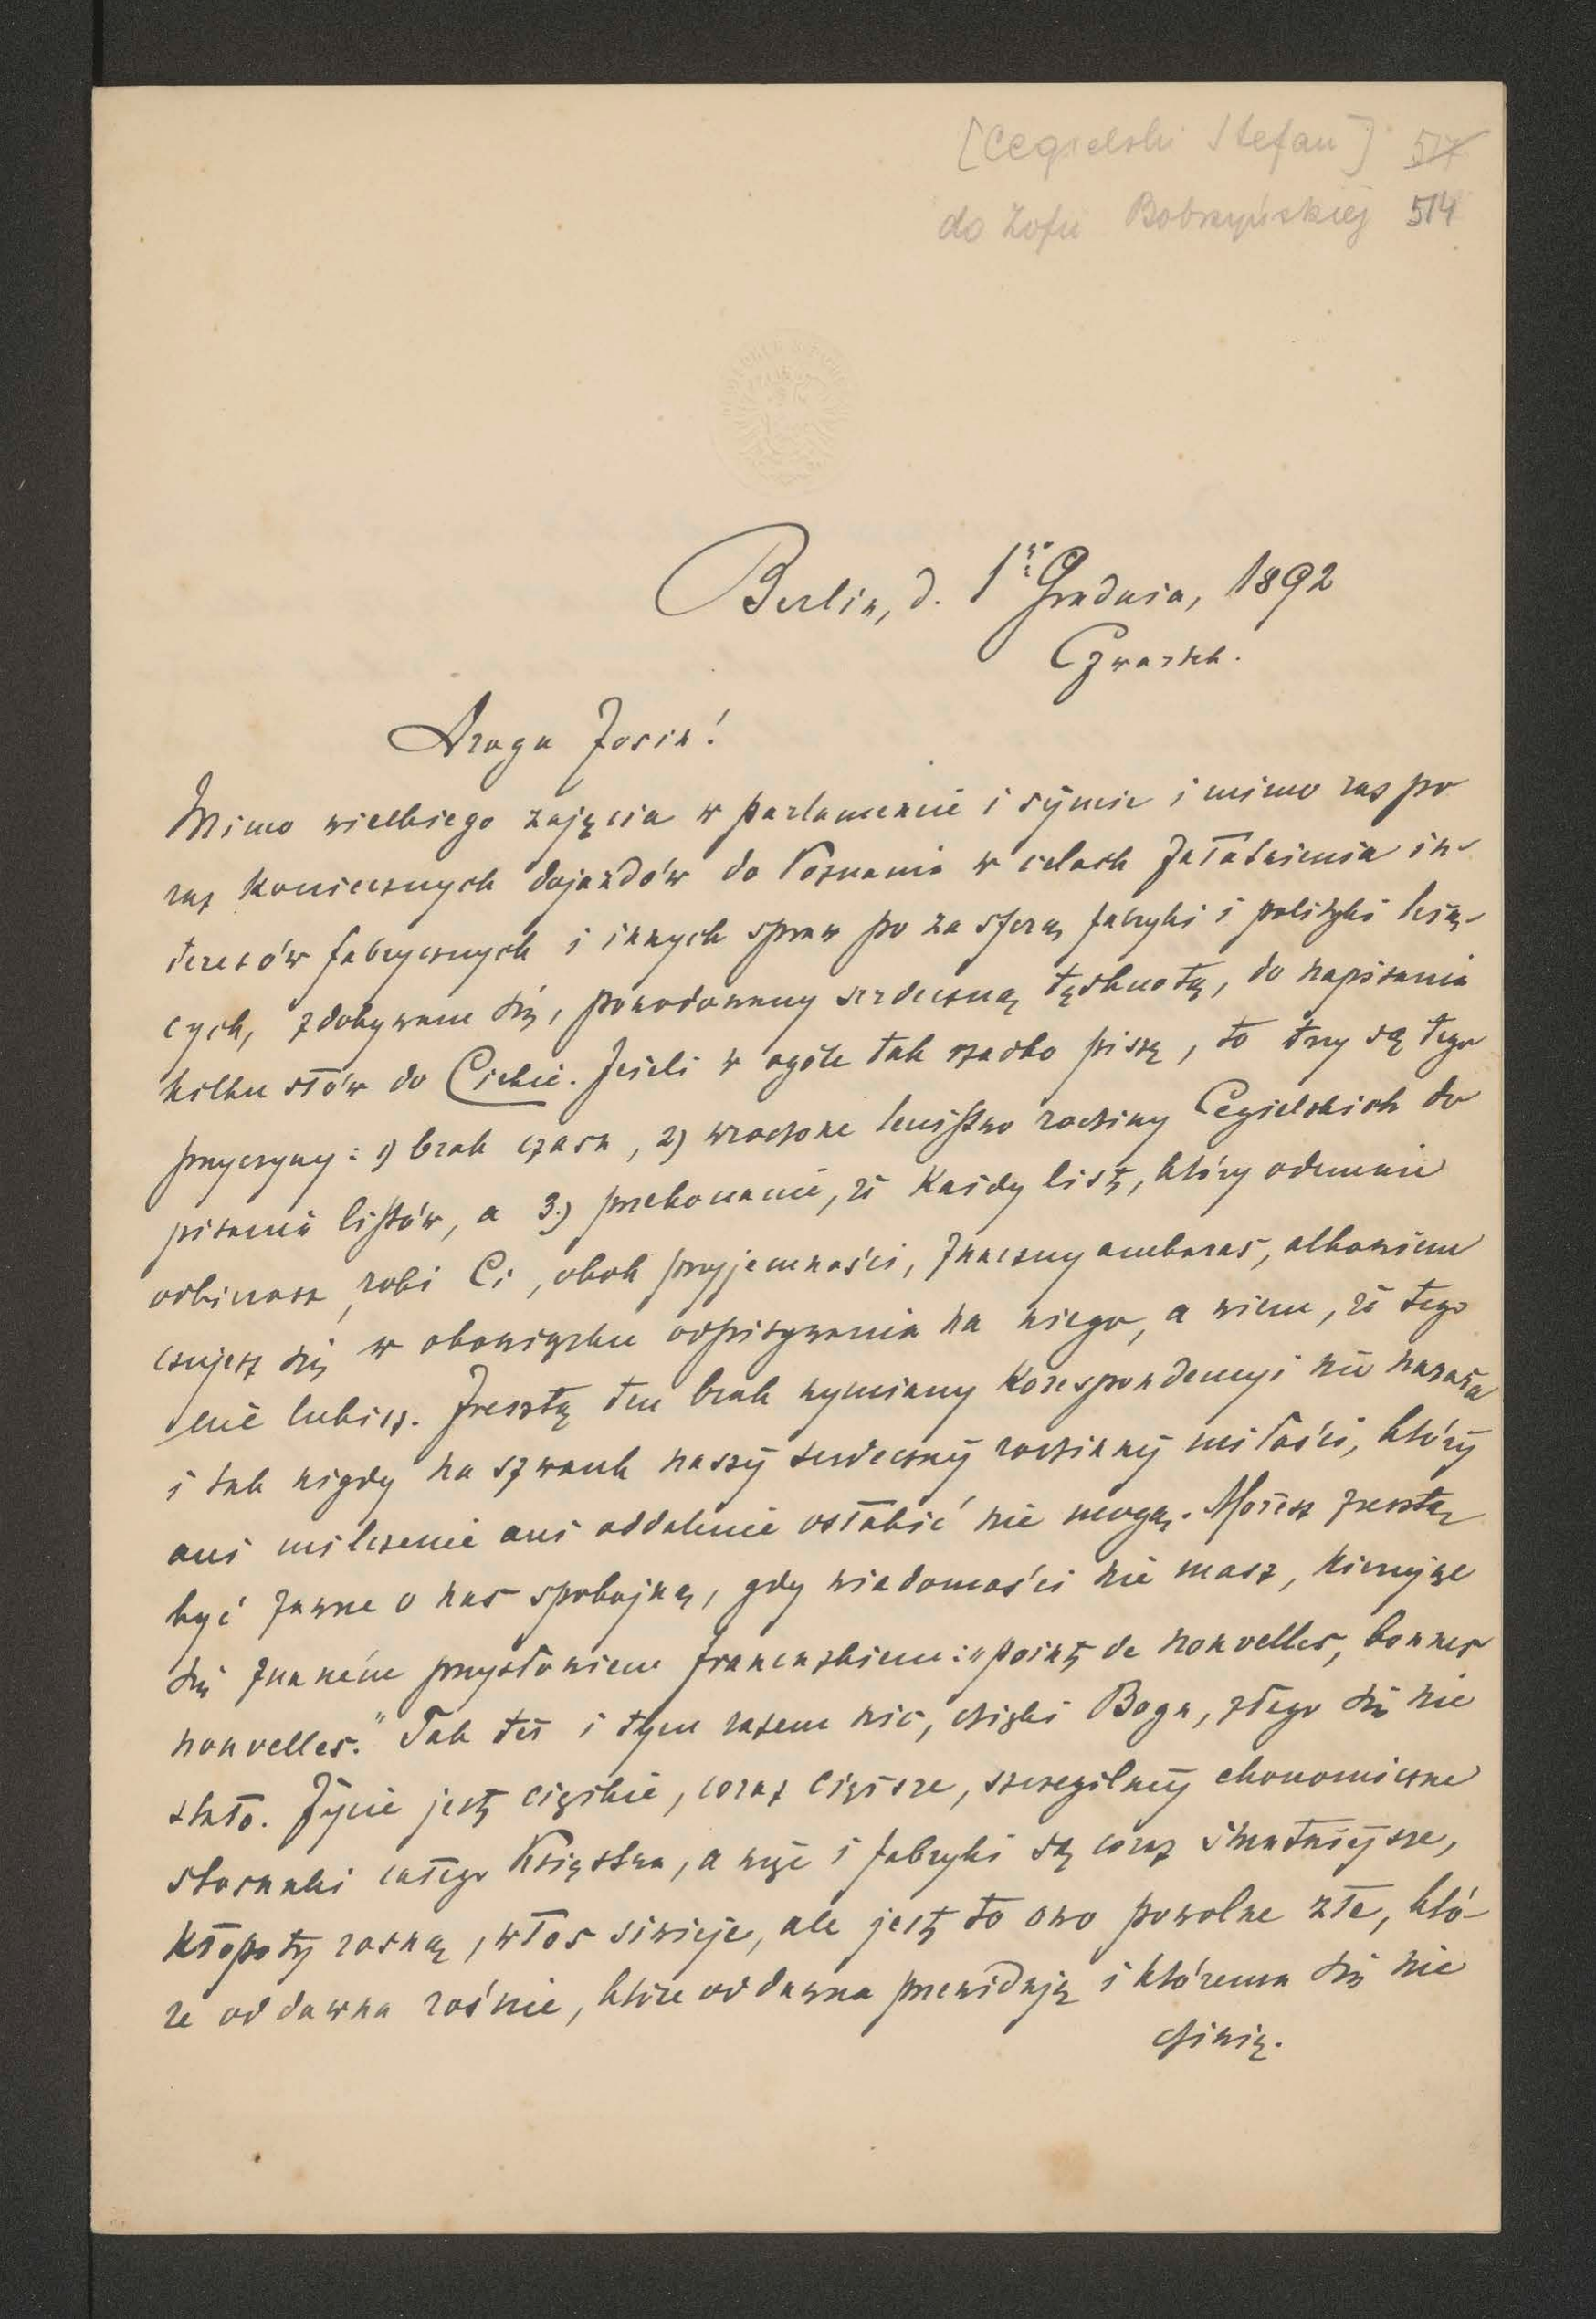 [Cegielski Stefan] 517
do Zofii Bobrzyńskiej 514
Berlin, d. 1go Grudnia, 1892
Czwartek.
Droga Zosiu!
Mimo wielkiego zajęcia w parlamencie i sejmie i mimo raz po
raz koniecznych dojazdów do Poznania w celach załatwienia in-
teresów fabrycznych i innych spraw po za sferą fabryki i polityki leżą-
cych, zdobywam się, powodowany serdeczną tęsknotą, do napisania
kilku słów do Ciebie. Jeżeli w ogóle tak rzadko piszę, to trzy są tego
przyczyny: 1) brak czasu, 2) wrodzone lenistwo rodziny Cegielskich do
pisania listów, a 3.) przekonanie, że każdy list, który odemnie
odbierasz, robi Ci, obok przyjemności, znaczny ambaras, albowiem
czujesz się w obowiązku odpisywania na niego, a wiem, że tego
nie lubisz. Zresztą ten brak wymiany korespondencyi nie naraża
i tak nigdy na szwank naszéj serdecznéj rodzinnéj miłości, któréj
ani milczenie ani oddalenie osłabić nie mogą. Możesz zresztą
być zawsze o nas spokojną, gdy wiadomości nie masz, kierując
się znaném przysłowiem francuzkiem: "point de nouvelles, bonnes
nouvelles." Tak też i tym razem nic, dzięki Bogu, złego się nie
stało. Życie jest ciężkie, coraz cięższe, szczególniéj ekonomiczne
stosunki całego Księstwa, a więc i fabryki są coraz smutniejsze,
kłopoty rosną, włos siwieje, ale jest to owo powolne złe, któ-
re od dawna rośnie, które od dawna przewiduję i któremu się nie
dziwię.